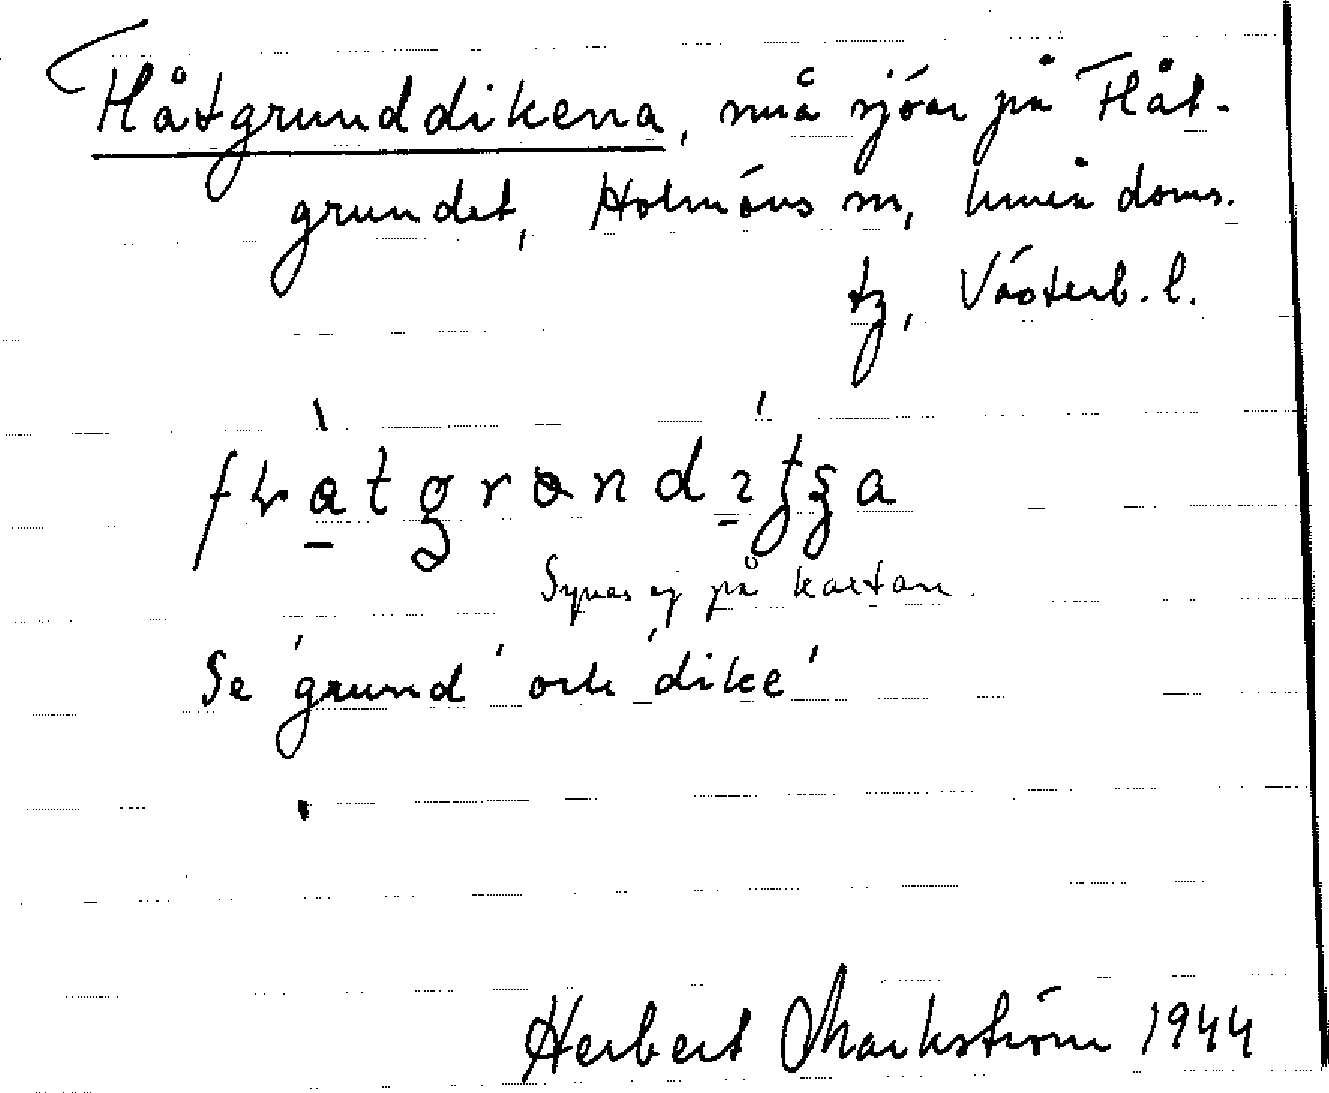 Flåtgrunddikena, små sjöar på Flåt-
grundet, Holmöns sn, Umeå doms.
tg, Västerb. l.
Synes ej på kartan.
Se 'grund' och 'dike'
Herbert Markström 1944